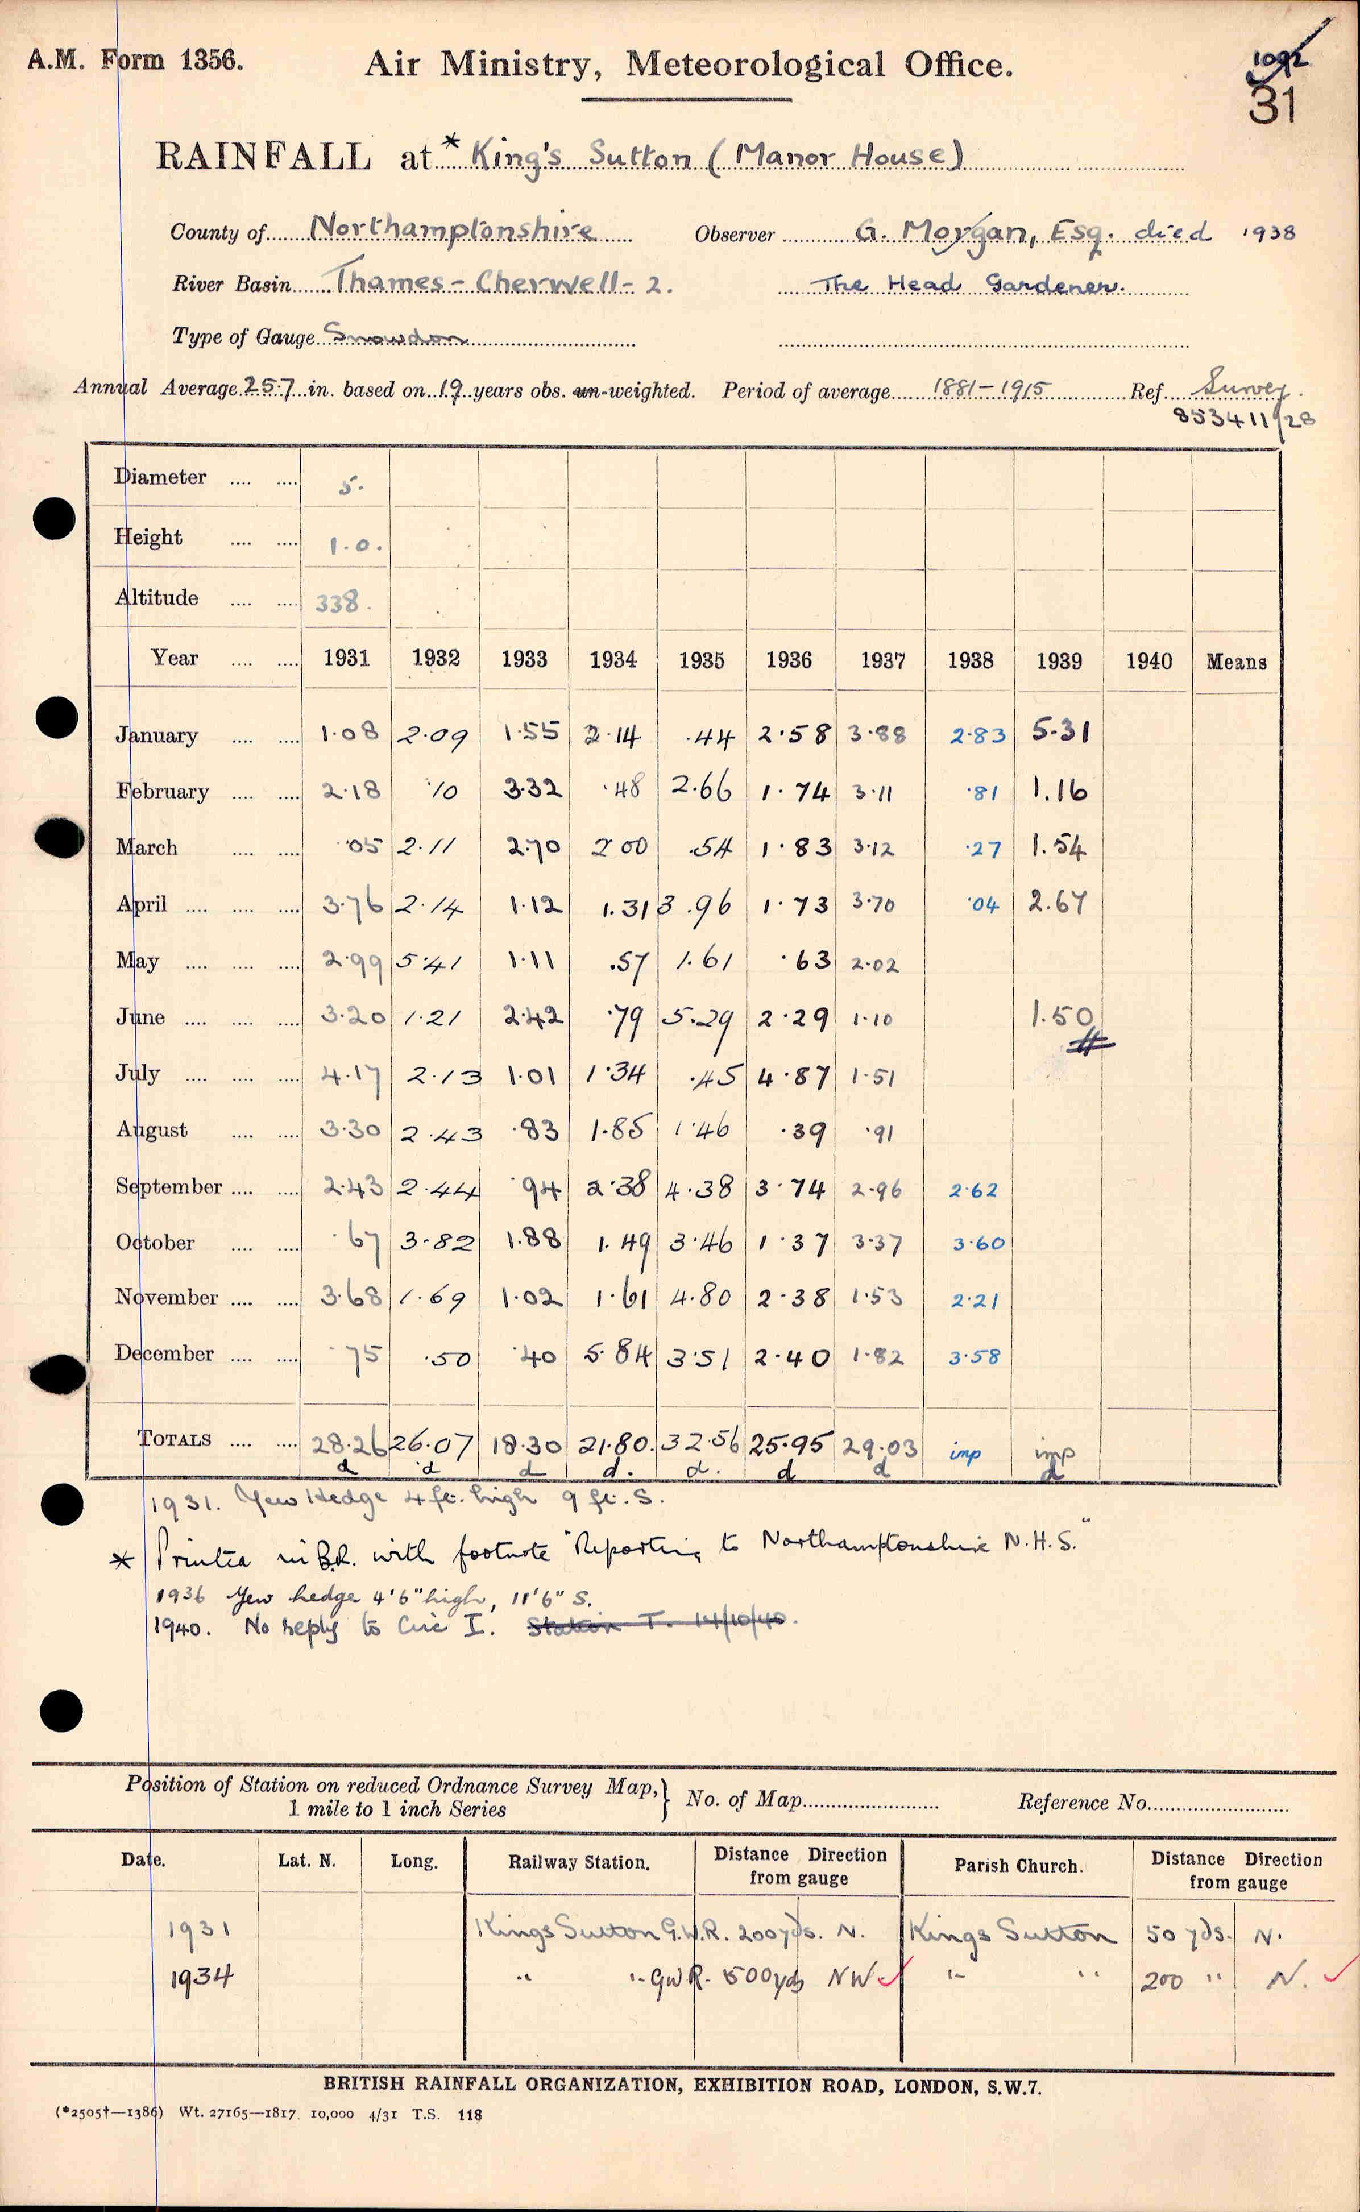 A.M. Form 1356.
Air Ministry, Meteorological Office.
1092
31
RAINFALL at * King's Sutton (Manor House)
County of Northamptonshire Observer G. Morgan, Esq. died 1938
River Basin Thames - Cherwell - 2. The Head Gardener.
Type of Gauge Snowdon
Annual Average 25.7 in. based on 19 years obs. un-weighted. Period of average 1881-1915 Ref. Survey.
853411/28
Diameter .... .... 5.
Height .... .... 1.0.
Altitude .... .... 338.
Year .... .... 1931 1932 1933 1934 1935 1936 1937 1938 1939 1940 Means
January .... .... 1.08 2.09 1.55 2.14 .44 2.58 3.88 2.83 5.31
February .... .... 2.18 .10 3.32 .48 2.66 1.74 3.11 .81 1.16
March .... .... .05 2.11 2.70 2.00 .54 1.83 3.12 .27 1.54
April .... .... .... 3.76 2.14 1.12 1.31 3.96 1.73 3.70 .04 2.67
May .... .... .... 2.99 5.41 1.11 .57 1.61 .63 2.02
June .... .... .... 3.20 1.21 2.42 .79 5.29 2.29 1.10 1.50
July .... .... .... 4.17 2.13 1.01 1.34 .45 4.87 1.51
August .... .... 3.30 2.43 .83 1.85 1.46 .39 .91
September .... .... 2.43 2.44 .94 2.38 4.38 3.74 2.96 2.62
October .... .... .67 3.82 1.88 1.49 3.46 1.37 3.37 3.60
November .... .... 3.68 1.69 1.02 1.61 4.80 2.38 1.53 2.21
December .... .... .75 .50 .40 5.84 3.51 2.40 1.82 3.58
TOTALS .... .... 28.26 26.07 18.30 21.80. 32.56 25.95 29.03 imp imp
d d d d. d. d d d
1931. Yew Hedge 4 ft. high 9 ft. S.
* Printed in B.R. with footnote "Reporting to Northamptonshire N.H.S."
1936 Yew hedge 4'6" high, 11'6" S.
1940. No reply to Circ I. Station T. 14/10/40.
Position of Station on reduced Ordnance Survey Map, } No. of Map Reference No.
1 mile to 1 inch Series
Date. Lat. N. Long. Railway Station. Distance Direction from gauge Parish Church. Distance Direction from gauge
1931 Kings Sutton G.W.R. 200 yds. N. Kings Sutton 50 yds. N.
1934 " " GWR. 500 yds NW " " 200 " N.
BRITISH RAINFALL ORGANIZATION, EXHIBITION ROAD, LONDON, S.W.7.
(*2505†—1386) Wt. 27165—1817. 10,000 4/31 T.S. 118